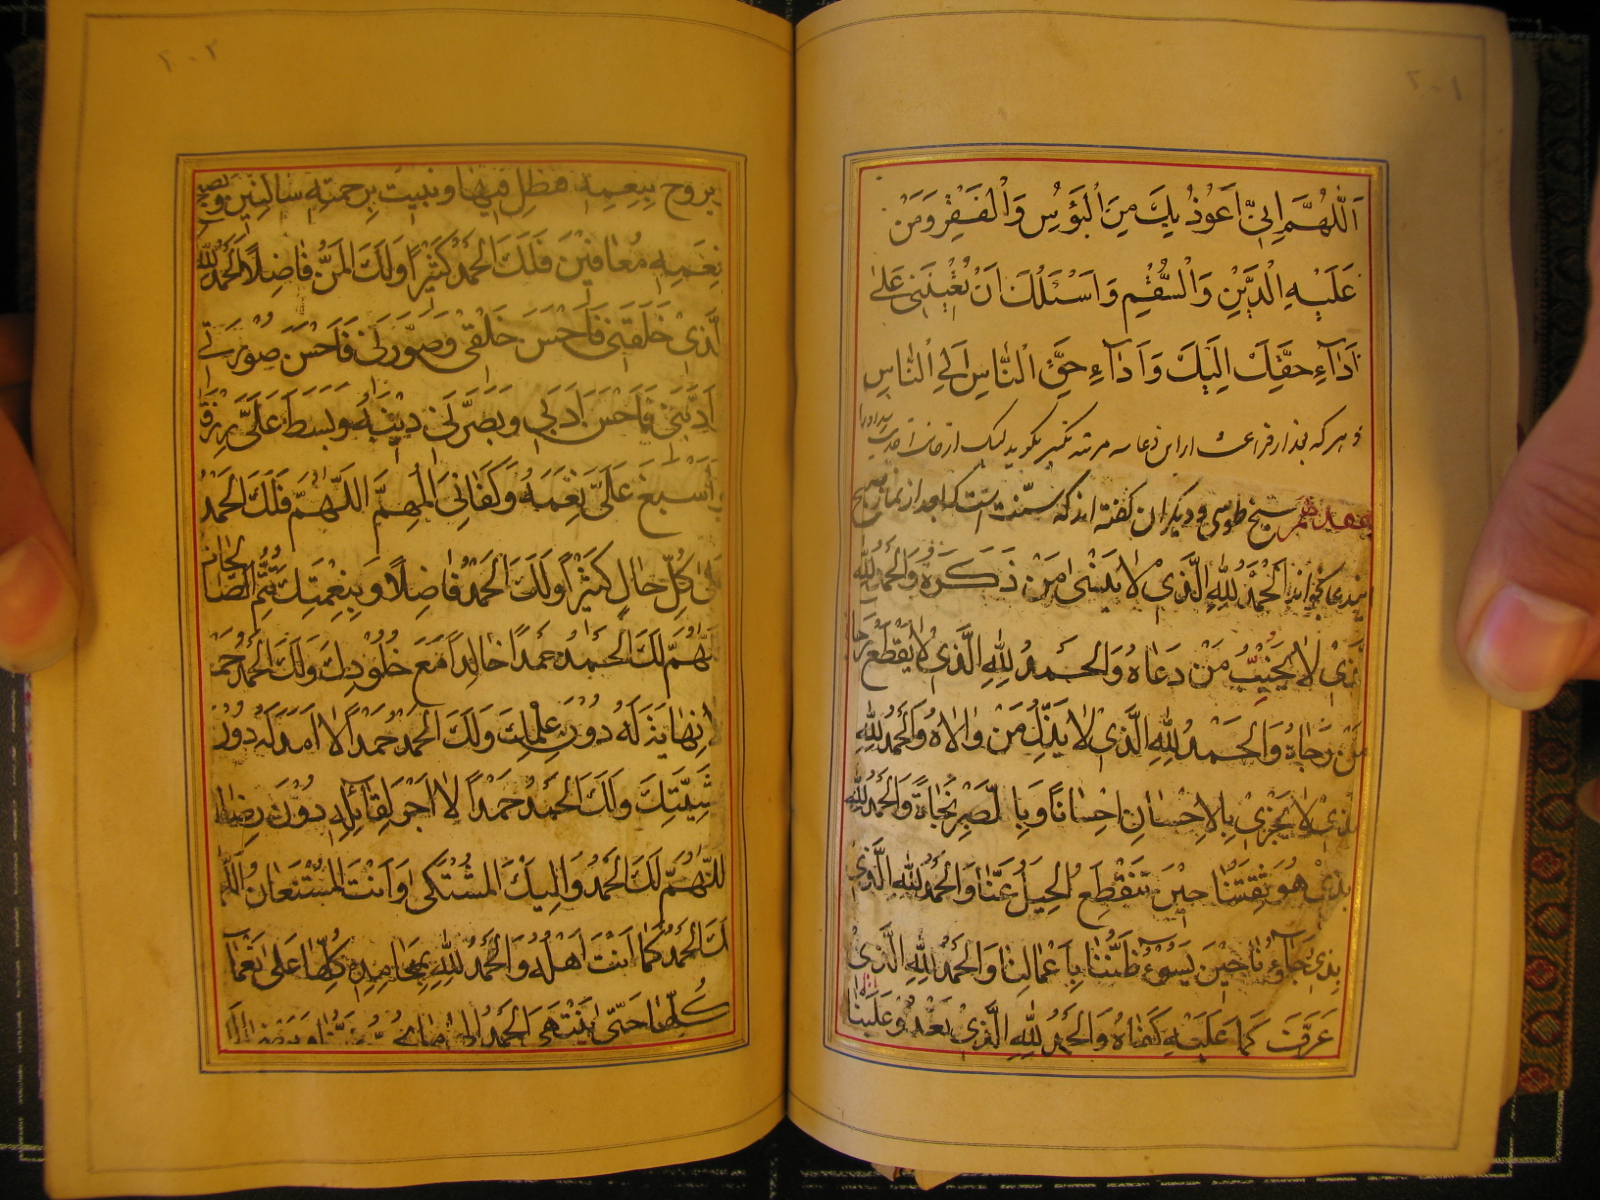 ٢٠١
اَللّٰهُمَّ اِنّیِ اَعُوذُ بِكَ مِنَ الْبُؤسِ وَالْفَقْرِ وَمِنْ
غَلَبَةِ الْدَّيْنِ وَالْسُّقْمِ وَاَسْئَلُكَ اَنْ تُعْيِنَنیِ عَلیٰ
اَدٰآءِ حَقِّكَ اِلَيْكَ وَاَدٰآءِ حَقِّ الْنّٰاسِ اِلَی الْنّٰاسِ
و هر که بعد از فراغت از این دعا سه مرتبه تکبیر بگوید
هفدهم شیخ طوسی و دیگران گفته اند که سنّت است که بعد از نماز صبح
بخواند اَلْحَمْدُ لِلّٰهِ الَّذیْ لاٰ يَنْسیٰ مَنْ ذَكَرَهُ وَالْحَمْدُ لِلّٰهِ
لَّذیْ لاٰ يُخَيِّبُ مَنْ دَعٰاهُ وَالْحَمْدُ لِلّٰهِ الَّذیْ لاٰ يَقْطَعُ رَجٰاءَ
مَنْ رَجٰاهُ وَالْحَمْدُ لِلّٰهِ الَّذیْ لاٰ يَذِلُّ مَنْ وٰالاٰهُ وَالْحَمْدُ لِلّٰهِ
لَّذیْ لاٰ يَجْزیْ بِالاِحْسٰانِ اِحْسٰانًا وَبِا لصَّبْرِ نَجٰاةً وَالْحَمْدُ لِلّٰهِ
لَّذیْ هُوَ ثِقَتُنٰا حِيْنَ تَنْقَطِعُ الْحِيَلُ عَنّٰا وَالْحَمْدُ لِلّٰهِ الَّذیْ
رَجٰآؤُنٰا حِيْنَ يَسُوْءُ ظَنُّنٰا بِاَعْمٰالِنٰا وَالْحَمْدُ لِلّٰهِ الَّذیْ
عَلَيْهِ كَفٰاهُ وَالْحَمْدُ لِلّٰهِ الَّذیْ يَغْدُوْ عَلَيْنٰا
٢٠٢
يروح بِنِعَمِهِ فَنَظِلُّ فِيْهٰا وَنَبِيْتُ بِرَحْمَتِهِ سٰالِمِيْنَ وَنُصْبِحُ
بِنِعَمِهِ مُعٰافِيْنَ فَلَكَ الْحَمْدُ كَثِيْرًا وَلَكَ الْمَنُّ فٰاضِلًا اَلْحَمْدُ لِلّٰهِ
لَّذیْ خَلَقَنیْ فَاَحْسَنَ خَلْقیْ وَصَوَّرَنیْ فَاَحْسَنَ صُوْرَتیْ
اَدَّبَنیْ فَاَحْسَنَ اَدَبیْ وَبَصَّرَنیْ دِيْنَهُ وَبَسَطَ عَلَیَّ رِزْقَهُ
اَسْبَغَ عَلَیَّ نِعَمَهُ وَكَفٰانیِ الْمُهِمَّ اَللّٰهُمَّ فَلَكَ الْحَمْدُ
عَلیٰ كُلِّ حٰالٍ كَثِيْرًا وَلَكَ الْحَمْدُ فٰاضِلًا وَبِنِعْمَتِكَ تَتِمُّ الصّٰالِحٰاتُ
للّٰهُمَّ لَكَ الْحَمْدُ حَمْدًا خٰالِدًا مَعَ خُلُوْدِكَ وَلَكَ الْحَمْدُ حَمْدًا
لاٰ نِهٰايَةَ لَهُ دُوْنَ عِلْمِكَ وَلَكَ الْحَمْدُ حَمْدًا لاٰ اَمَدَ لَهُ دُوْنَ
مَشِيَّتِكَ وَلَكَ الْحَمْدُ حَمْدًا لاٰ اَجْرَ لِقٰائِلِهِ دُوْنَ رِضٰاكَ
للّٰهُمَّ لَكَ الْحَمْدُ وَاِلَيْكَ الْمُشْتَكیٰ وَاَنْتَ الْمُسْتَعٰانُ اللّٰهُمَّ
لَكَ الْحَمْدُ كَمٰا اَنْتَ اَهْلُهُ وَالْحَمْدُ لِلّٰهِ بِمَحٰامِدِهِ كُلِّهٰا عَلیٰ نَعْمٰآئِهِ
كُلِّهٰا حَتّیٰ يَنْتَهیَ الْحَمْدُ اِلیٰ